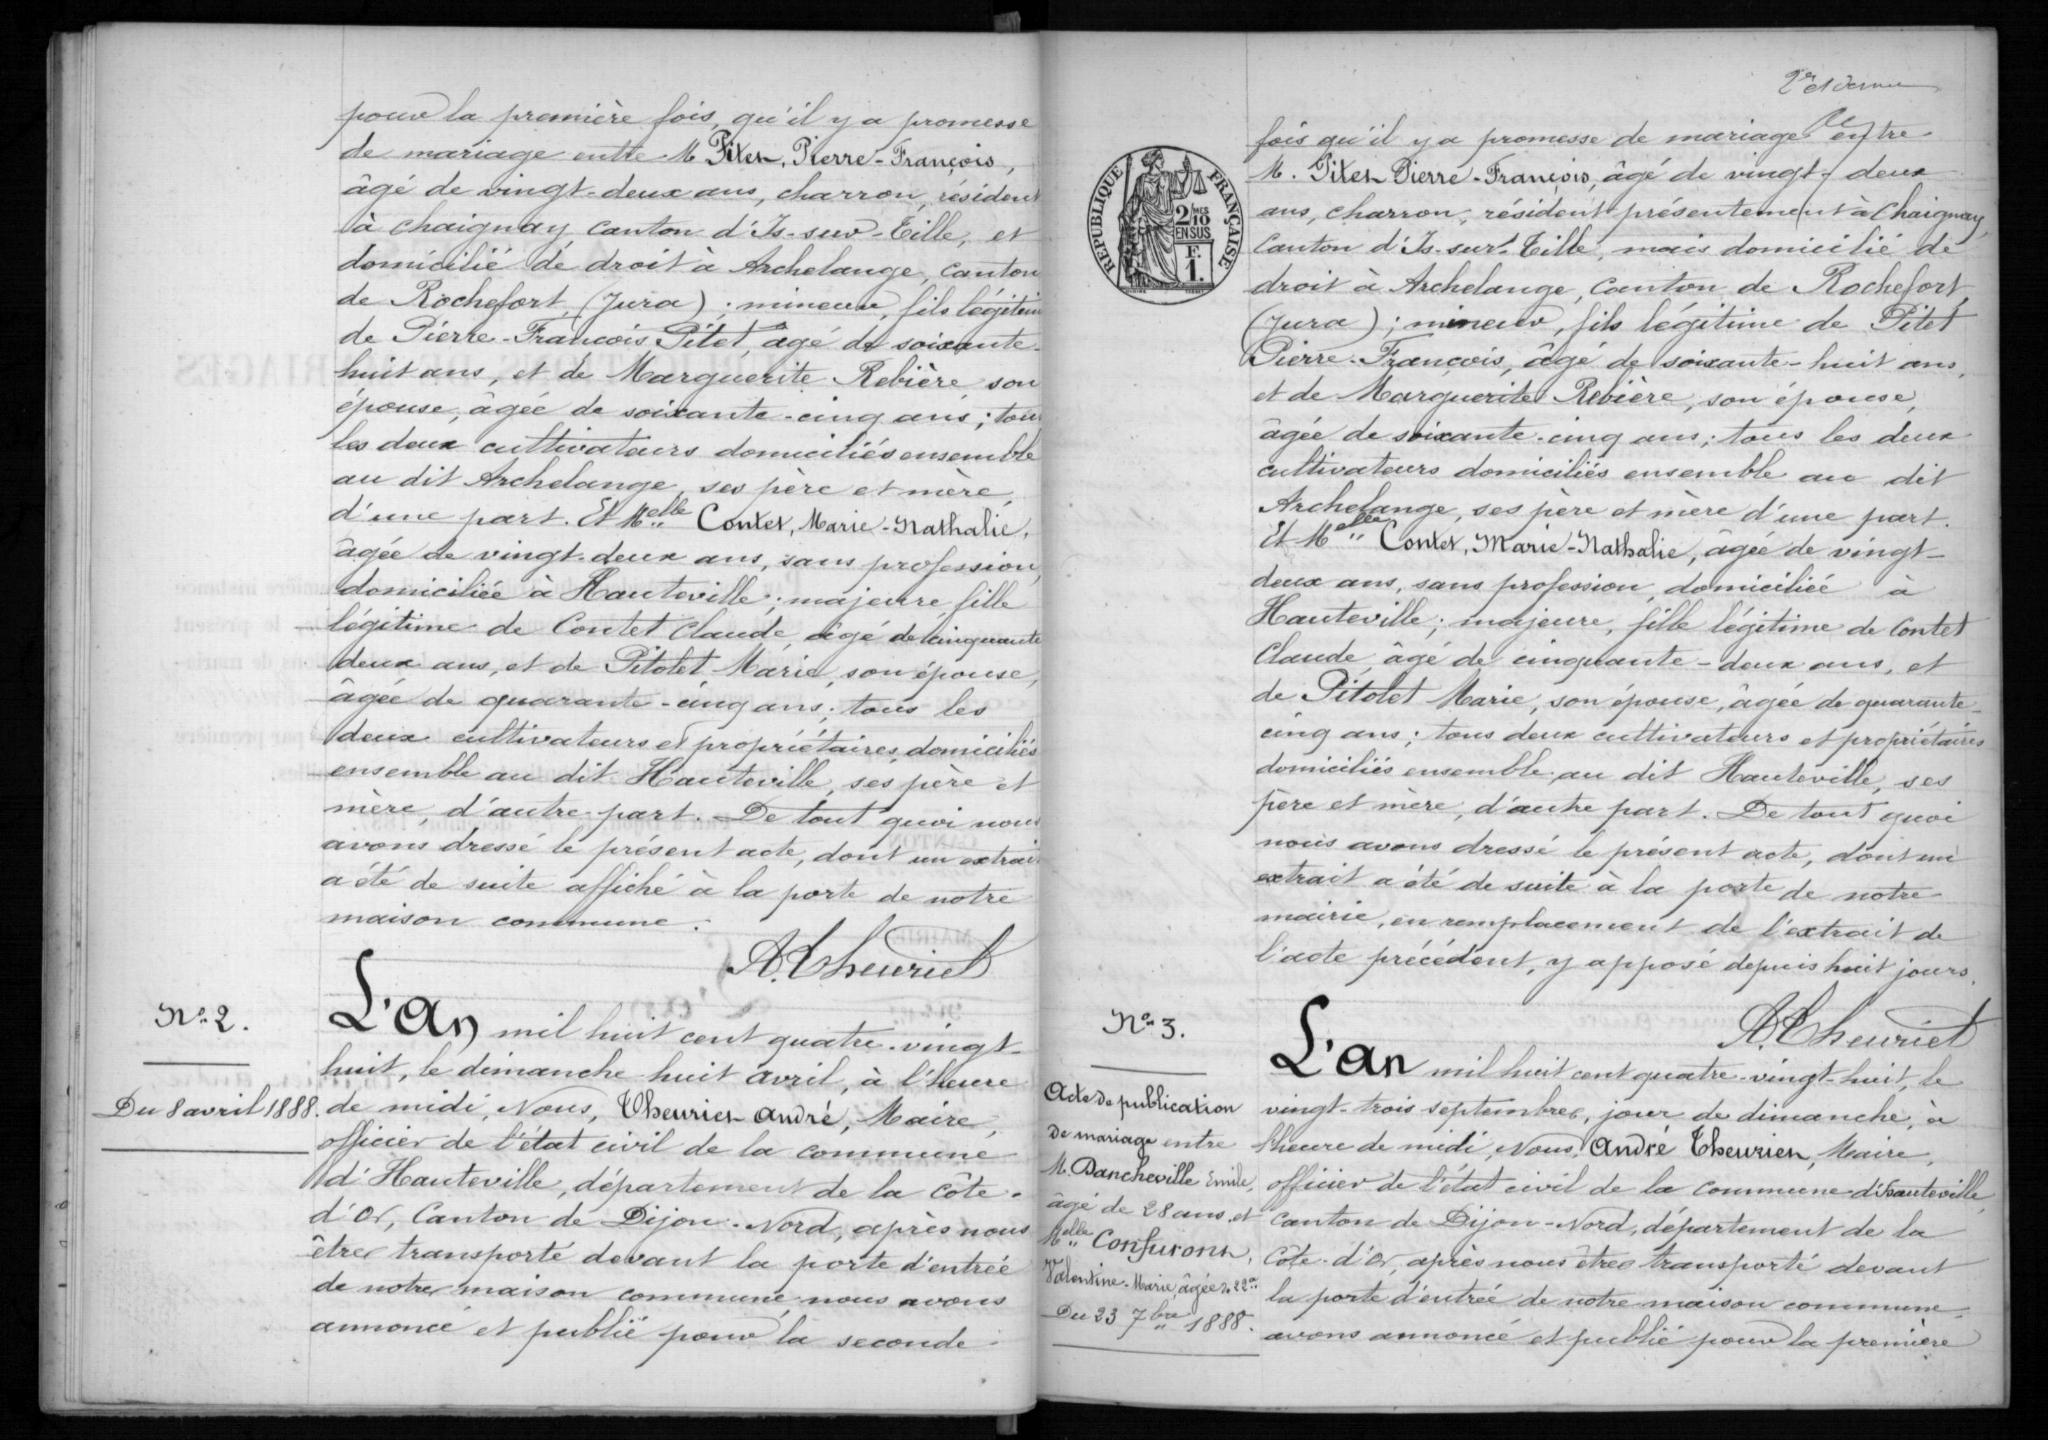 pour la première fois, qu'il y a promesse
de mariage entre M. Pitet, Pierre-François,
âgé de vingt-deux ans, charron, résident
à Chaignay canton d'Is-sur-Tille, et
domicilié de droit à Archelange, canton
de Rochefort, (Jura); mineur, fils légitime
de Pierre-François Pitet, âgé de soixante-
huit ans, et de Marguerite Rebière son
épouse, âgée de soixante-cinq ans; tous
les deux cultivateurs domiciliés ensemble
au dit Archelange, ses père et mère,
d'une part. Et Melle Contet, Marie-Nathalie,
âgée de vingt-deux ans, sans profession,
domiciliée à Hauteville; majeure fille
légitime de Contet Claude, âgé de cinquante
deux ans, et de Pitolet Marie, son épouse,
âgée de quarante-cinq ans; tous les
deux cultivateurs et propriétaires, domiciliés
ensemble au dit Hauteville, ses père et
mère, d'autre part. De tout quoi nous
avons dressé le présent acte, dont un extrait
a été de suite affiché à la porte de notre
maison commune.
A. Theuriet
No 2.
Du 8 avril 1888.
L'an mil huit cent quatre-vingt-
huit, le dimanche huit avril, à l'heure
de midi, Nous, Theuriet André, Maire,
officier de l'état civil de la commune
d'Hauteville, département de la Côte-
d'Or, Canton de Dijon-Nord, après nous
être transporté devant la porte d'entrée
de notre maison commune nous avons
annoncé et publié pour la seconde
2e et dernière
RÉPUBLIQUE FRANÇAISE
2/10mes
EN SUS
F.
1.
fois qu'il y a promesse de mariage entre
M. Pitet Pierre-François, âgé de vingt-deux
ans, charron, résident présentement à Chaignay,
Canton d'Is-sur-Tille, mais domicilié de
droit à Archelange, canton de Rochefort,
(Jura); mineur, fils légitime de Pitet
Pierre-François, âgé de soixante-huit ans,
et de Marguerite Rebière, son épouse,
âgée de soixante-cinq ans; tous les deux
cultivateurs domiciliés ensemble au dit
Archelange, ses père et mère d'une part.
Et Melle Contet, Marie-Nathalie, âgée de vingt-
deux ans, sans profession, domiciliée à
Hauteville; majeure, fille légitime de Contet
Claude, âgé de cinquante-deux ans, et
de Pitolet Marie, son épouse, âgée de quarante-
cinq ans; tous deux cultivateurs et propriétaires
domiciliés ensemble au dit Hauteville, ses
père et mère, d'autre part. De tout quoi
nous avons dressé le présent acte, dont un
extrait a été de suite à la porte de notre
mairie, en remplacement de l'extrait de
l'acte précédent, y apposé depuis huit jours.
A. Theuriet
No 3.
Acte de publication
de mariage entre
M. Dancheville Emile,
âgé de 28 ans, et
Melle Confuron,
Valentine-Marie, âgée de 22 a.
Du 23 7bre 1888.
L'an mil huit cent quatre-vingt-huit, le
vingt-trois septembre, jour de dimanche, à
l'heure de midi, Nous, André Theuriet, Maire,
officier de l'état civil de la commune d'Hauteville,
canton de Dijon-Nord, département de la
Côte-d'Or, après nous être transporté devant
la porte d'entrée de notre maison commune
avons annoncé et publié pour la première